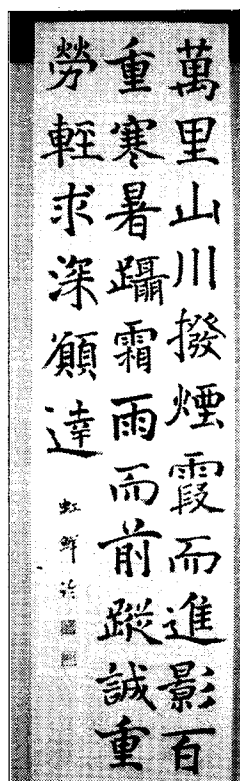 萬里山川撥煙霞而進影百
重寒暑躡霜雨而前蹤誠重
勞輕求深願達
虹鮮